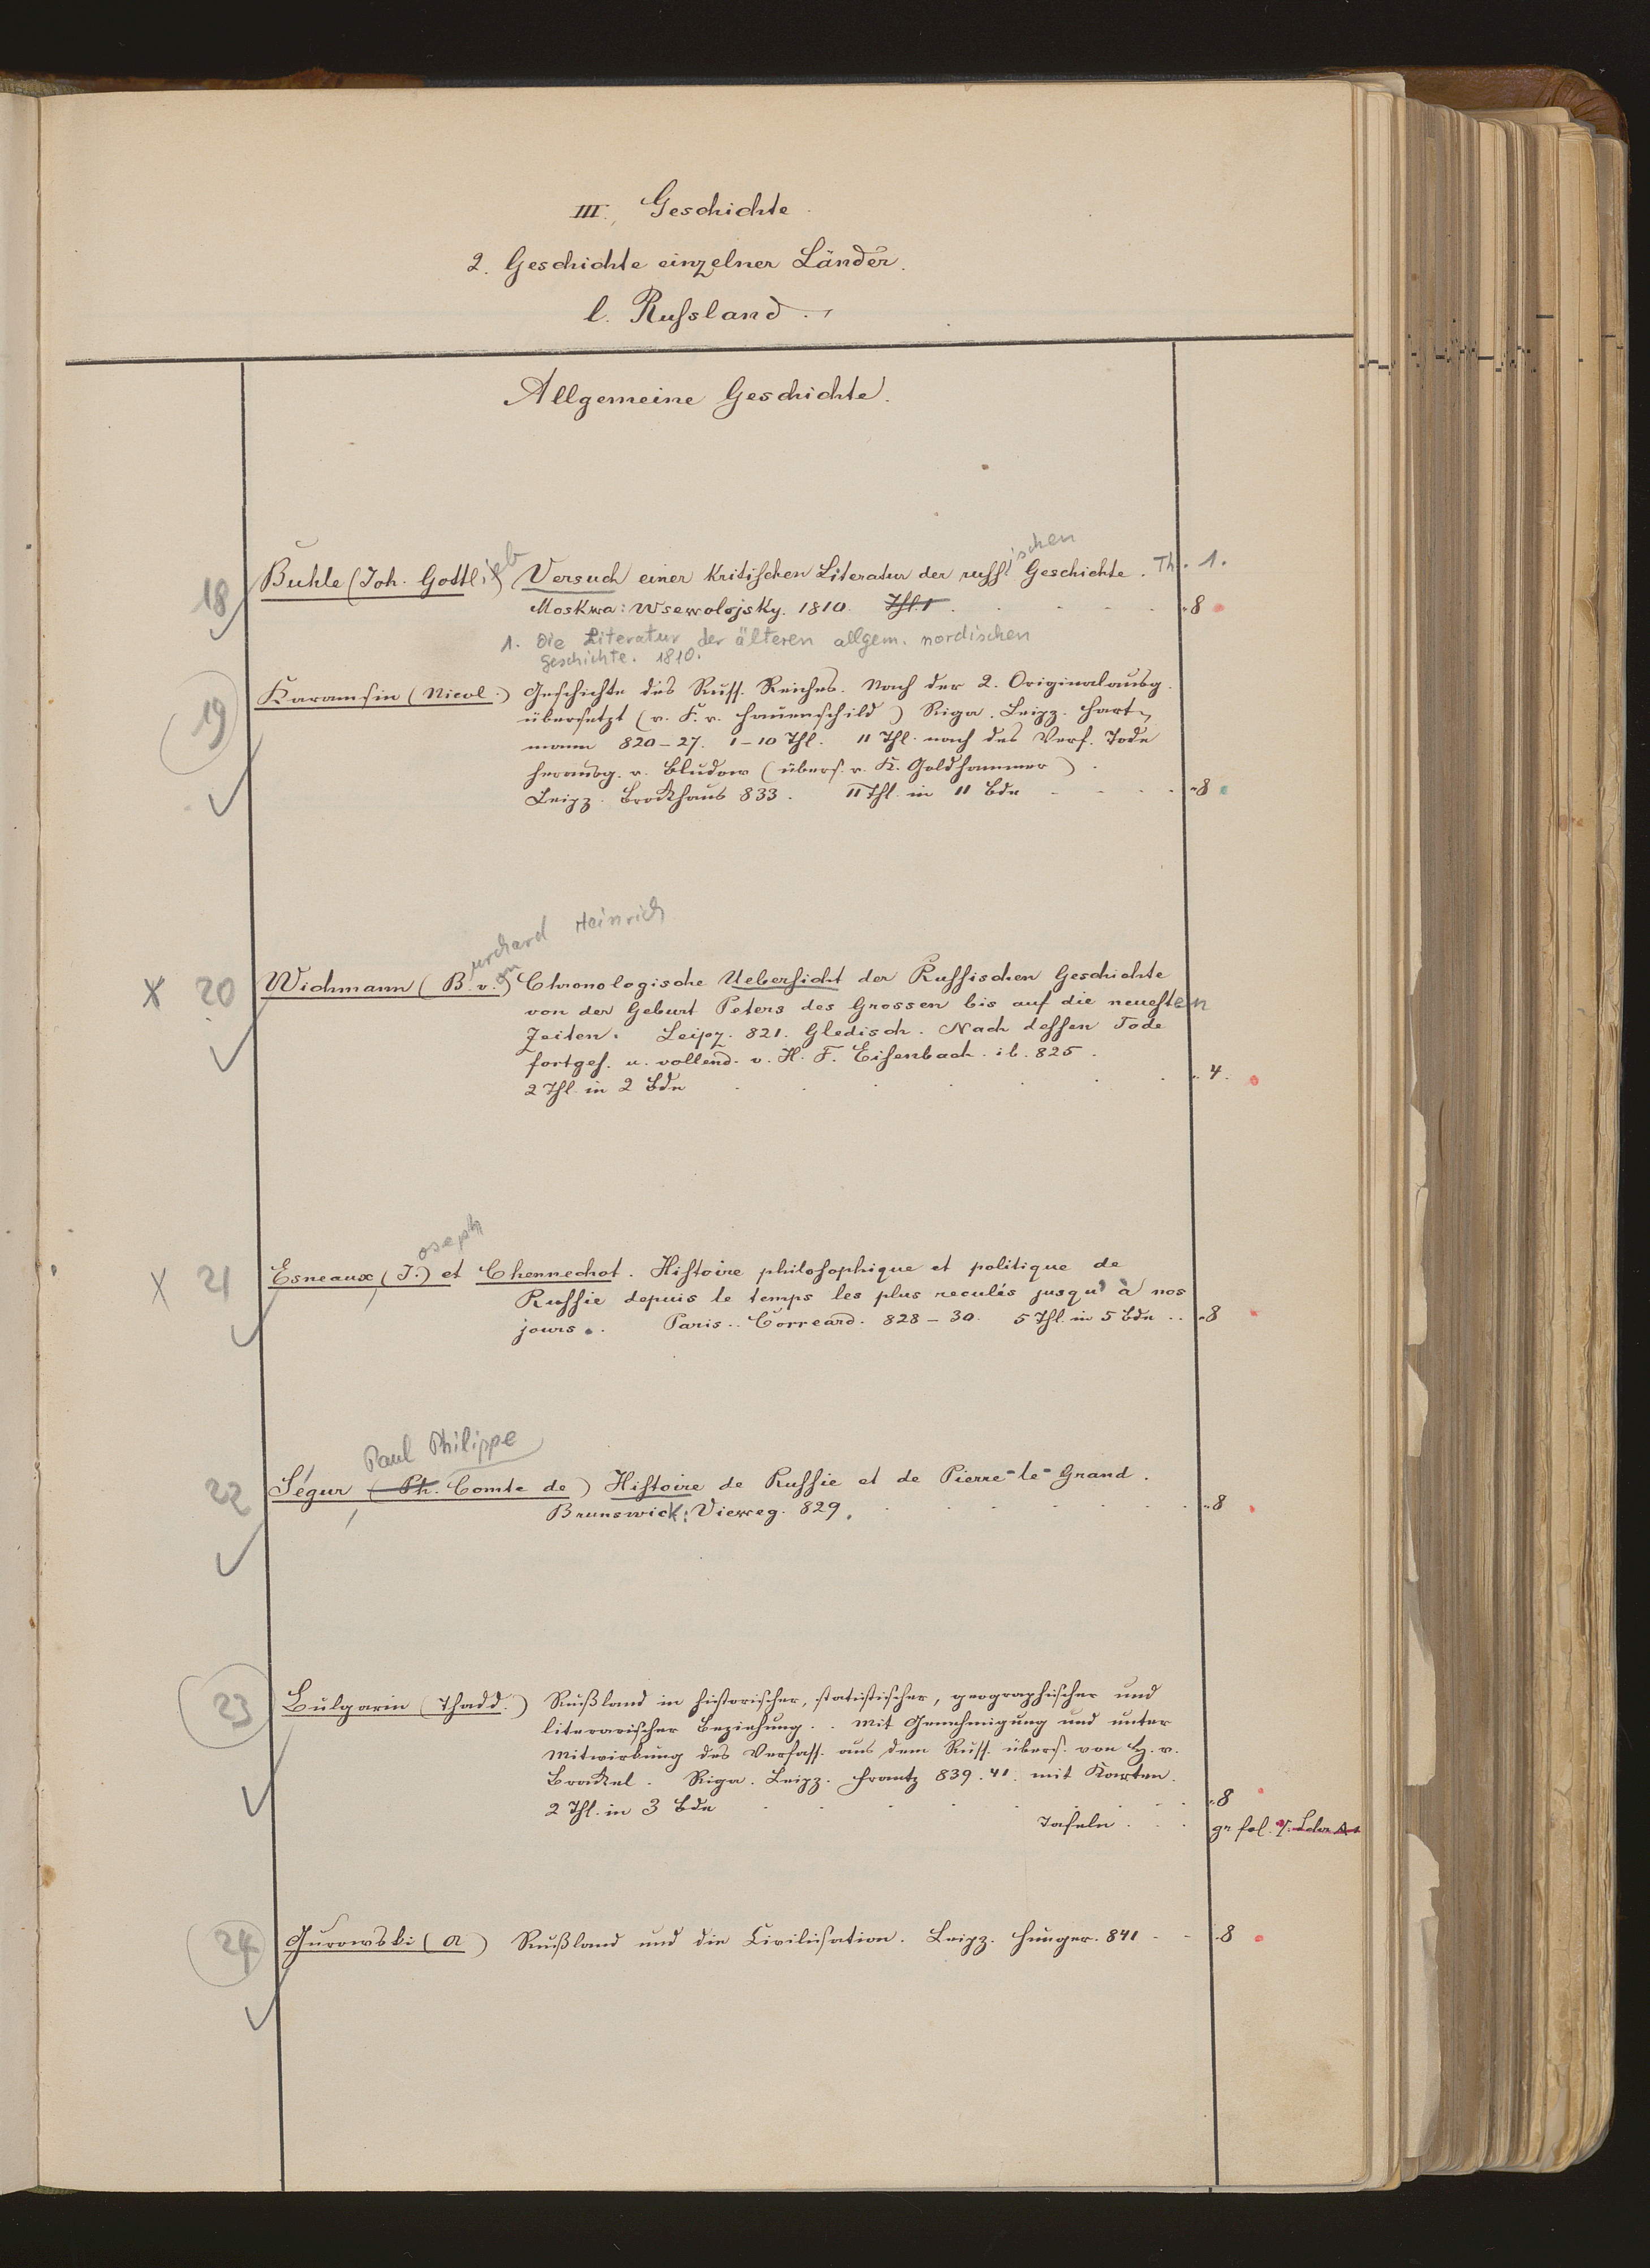 III. Geschichte
2. Geschichte einzelner Länder.
l. Russland.
Allgemeine Geschichte.
18 Buhle (Joh. Gottlieb) Versuch einer kritischen Literatur der russischen Geschichte. Th. 1.
Moskwa: Wsewolojsky. 1810. Thl. 1 8
1. Die Literatur der älteren allgem. nordischen
Geschichte. 1810.
19 Karamsin (Nicol.) Geschichte des Russ. Reiches. Nach der 2. Originalausg.
übersetzt (v. F. v. Hauenschild) Riga. Leipz. Hart-
mann 820-27. 1-10 Thl. 11 Thl. nach des Verf. Tode
herausg. v. Bludow (übers. v. K. Goldhammer).
Leipz. Brockhaus 833. 11 Thl. in 11 Bde 8
urchard Heinrich
x 20 Wichmann (B. v.on) Chronologische Uebersicht der Russischen Geschichte
von der Geburt Peters des Grossen bis auf die neuesten
Zeiten. Leipz. 821. Gledisch. Nach dessen Tode
fortges. u. vollend. v. H. F. Eisenbach. ib. 825.
2 Thl. in 2 Bde 4.
oseph
x 21 Esneaux (J.) et Chennechot. Histoire philosophique et politique de
Russie depuis le temps les plus reculés jusqu'à nos
jours. Paris. Corréard. 828-30. 5 Thl. in 5 Bde 8
Paul Philippe
22 Ségur (Ph. Comte de) Histoire de Russie et de Pierre-le-Grand.
Brunswick: Vieweg. 829. 8
23 Bulgarin (Thadd.) Rußland in historischer, statistischer, geographischer und
literarischer Beziehung. Mit Genehmigung und unter
Mitwirkung des Verfass. aus dem Russ. übers. von H. v.
Brackel. Riga. Leipz. Frantz 839.41. mit Karten.
2 Thl. in 3 Bde 8
Tafeln gr fol.
24 Gurowski (A) Rußland und die Civilisation. Leipz. Hunger. 841 8